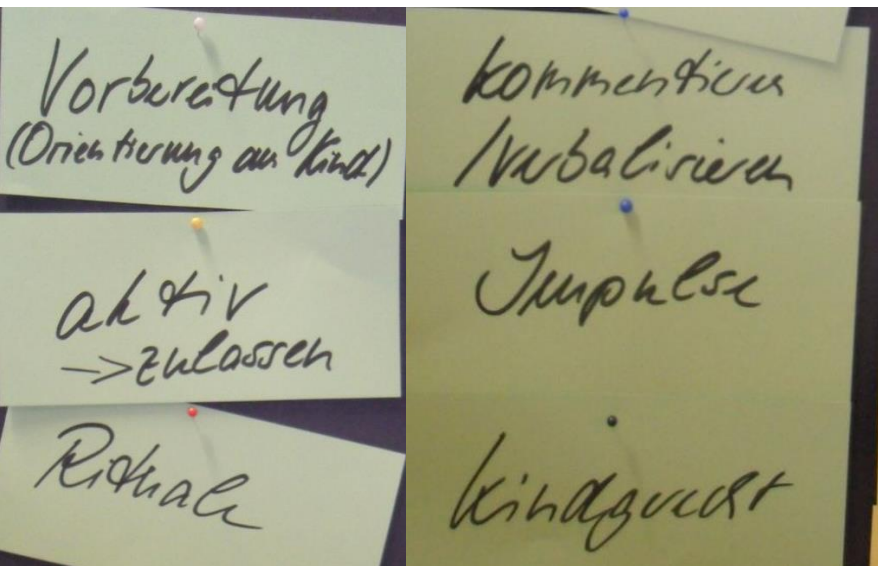 Vorbereitung
(Orientierung am Kind)
aktiv
->zulassen
Rituale
kommentieren
/verbalisieren
Impulse
kindgerecht